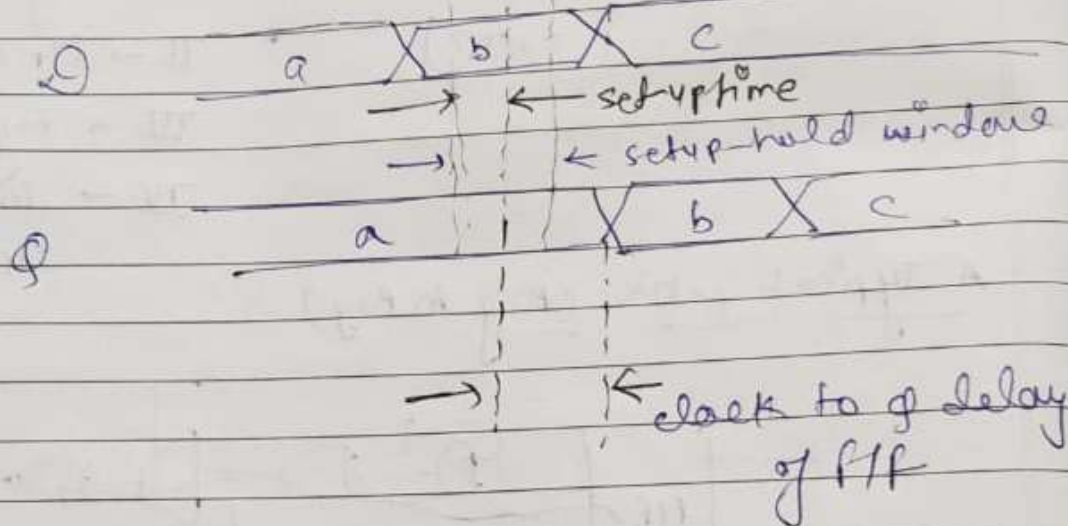 D a b c
setuptime
setup-hold window
Q a b c
clock to Q delay
of f/f